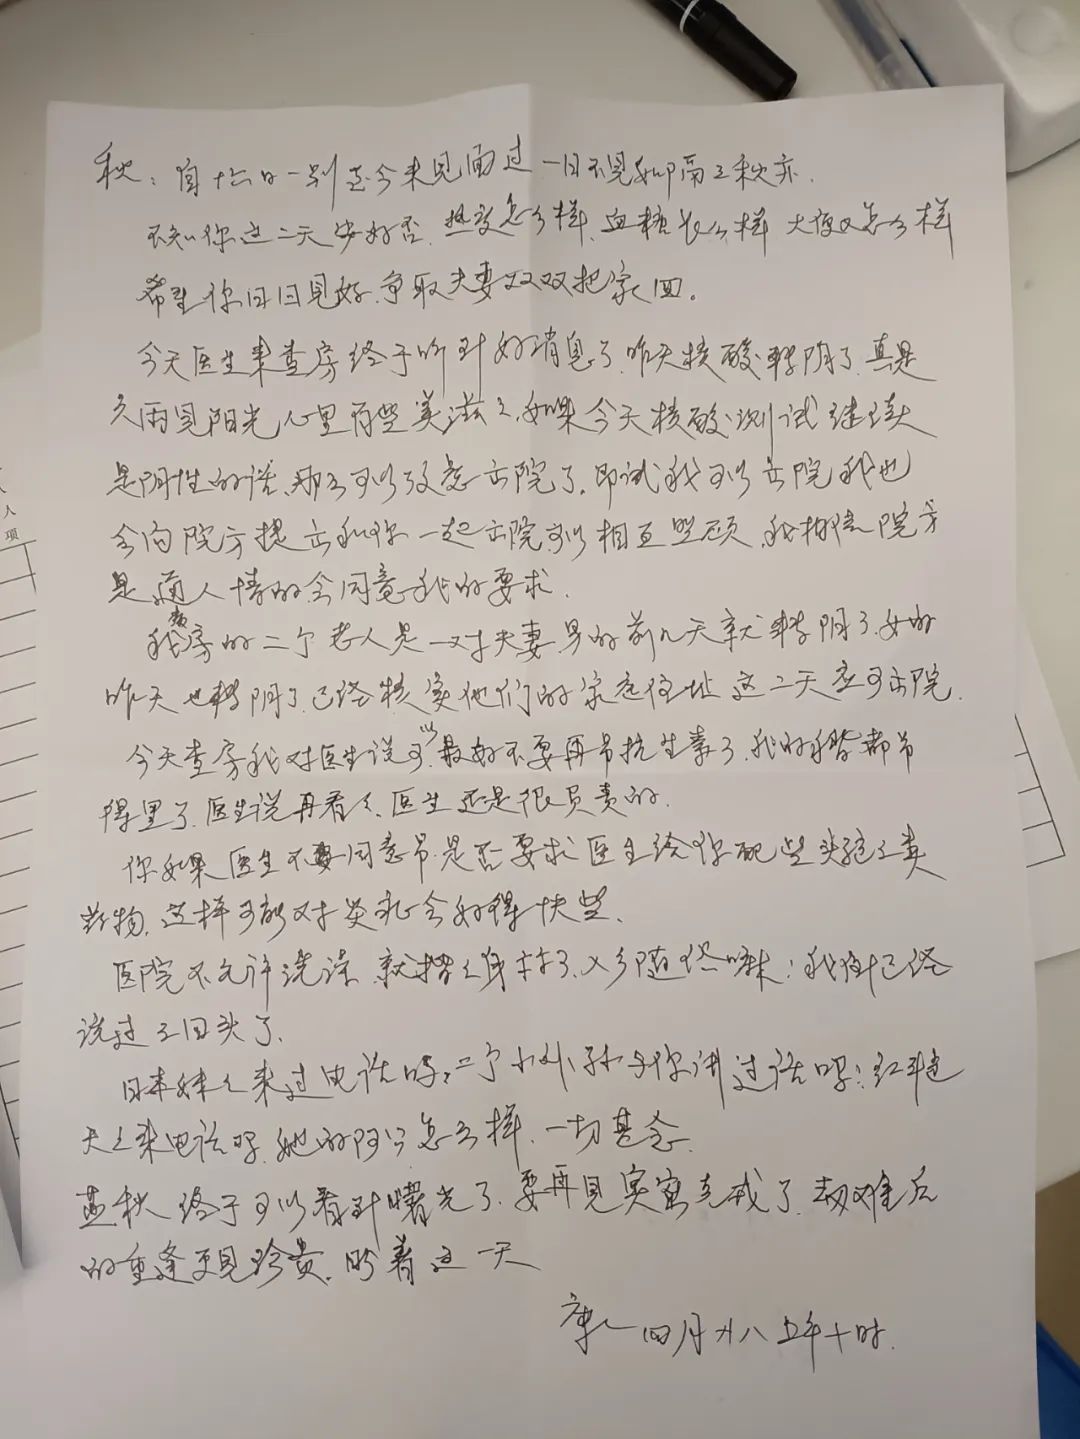 秋：自十六日一别至今未见面过一日不见如隔三秋亦.
不知你这二天安好否.热度怎么样.血糖怎么样 大便又怎么样
希望你日日见好.争取夫妻双双把家回。
今天医生来查房终于听到好消息了.昨天核酸转阴了.真是
久雨见阳光心里有些美滋之.如果今天核酸测试继续
是阴性的话.那么可以考虑出院了.即试我可以出院我也
会向院方提出和你一起出院可以相互照顾.我相信院方
是通人情的会同意我的要求.
我病房的二个老人是一对夫妻.男的前几天就转阴了.女的
昨天也转阴了.已经核实他们的家庭住址 这二天应可出院.
今天查房我对医生说可以最好不要再吊抗生素了.我的手臂都吊
得黑了.医生说再看之.医生还是很负责的.
你如果医生不同意吊.是否要求医生给你配些头孢之类
药物.这样可能对炎症会好得快些.
医院不允许洗澡.就揩之身算了.入乡随俗嘛：我俩已经
说过三回头了.
日本妹之来过电话吗?二个小外孙与你讲过话吗?红
天之来电话吗.她的阿公怎么样.一切甚念.
燕秋 终于可以看到曙光了.要再见实实在在了.劫难后
的重逢更见珍贵.盼着这一天
康 四月廿八 上午十时.
人
项